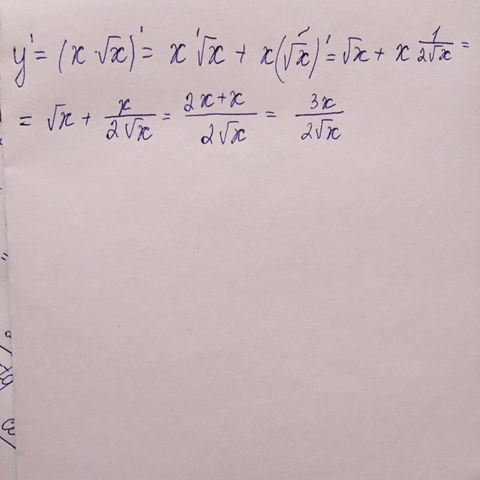 y' = (x·√x)' = x'√x + x(√x)' = √x + x 1/(2√x) =
= √x + x/(2√x) = (2x+x)/(2√x) = 3x/(2√x)